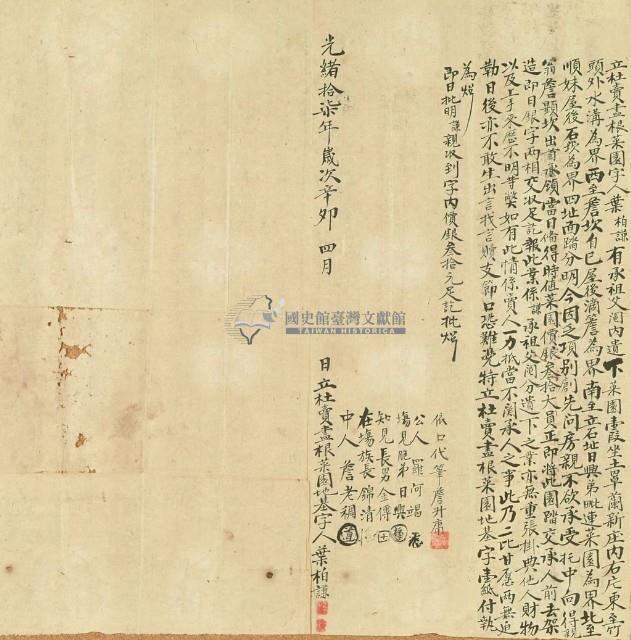 立杜賣盡根菜園字人葉柏謙有承祖父鬮內遺下菜園壹段坐土罩蘭新庄內右片東至竹
頭外水溝為界西至詹坎自己屋後滴簷為界南至立石址日興弟毗連菜園為界北至
順妹屋後石坎為界四址面踏分明今因乏項别創先问房親不欲承受托中向得
翁詹顯坎出首承領當日俻得時値菜園價銀叁拾大員正即將此園踏交承人前去架
造即日銀字兩相交收足訖報此業係謙承祖父鬮分遺下之業亦無重張掛典他人財物
以及上手交歷不明等獘如有此情係賣人一力抵當不関承人之事此乃二比甘愿兩無迫
勒日後亦不敢生出言找言贖支節口恐難凭特立杜賣盡根菜園地基字壹紙付執
為炤
即日批明謙親收到字內價銀叁拾元足訖批炤
依口代筆詹升康
公人羅阿竭
塲見胞弟日興
知見長男金傳
在塲族長錦清
中人詹老稠
光緒拾柒年歲次辛卯四月
日立杜賣盡根菜園地基字人葉柏謙
國史館臺灣文獻館
TAIWAN HISTORICA